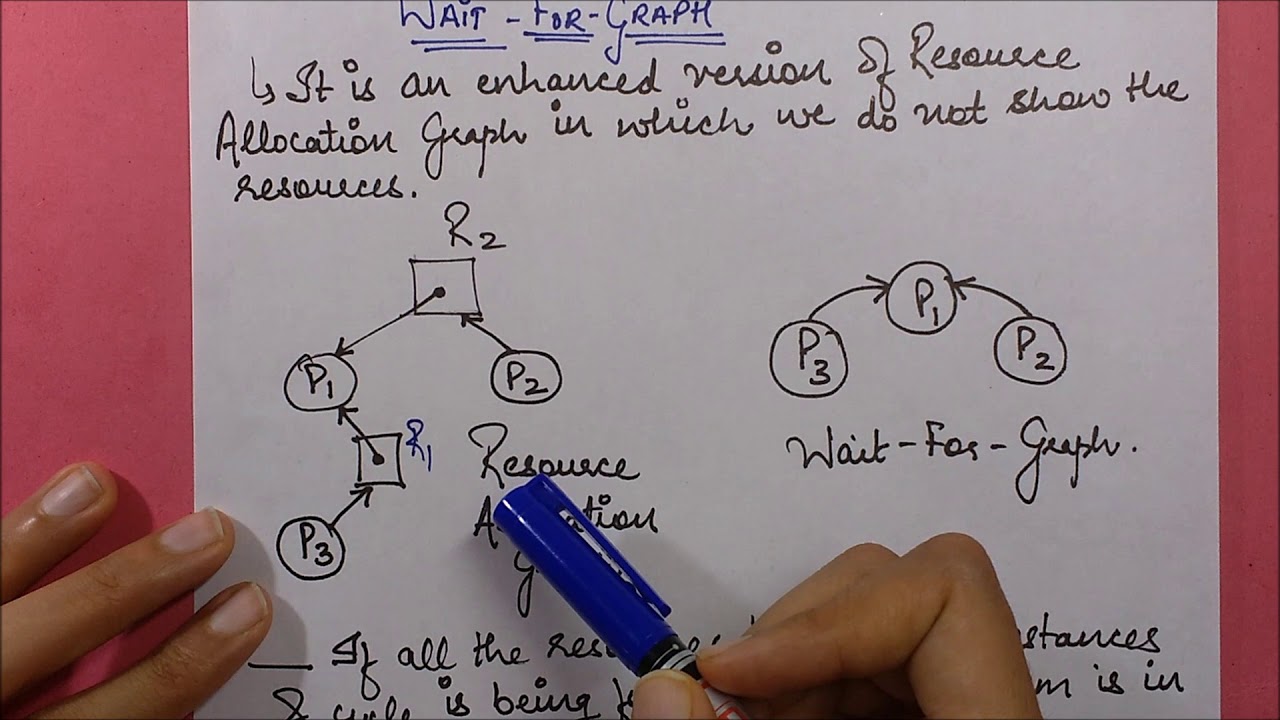 WAIT-FOR-GRAPH
↳ It is an enhanced version of Resource
Allocation Graph in which we do not show the
resources.
R2
P1
P2
R1
P3
Resource
P1
P3
P2
Wait-For-Graph.
If all the
stances
& cycle is being
is in